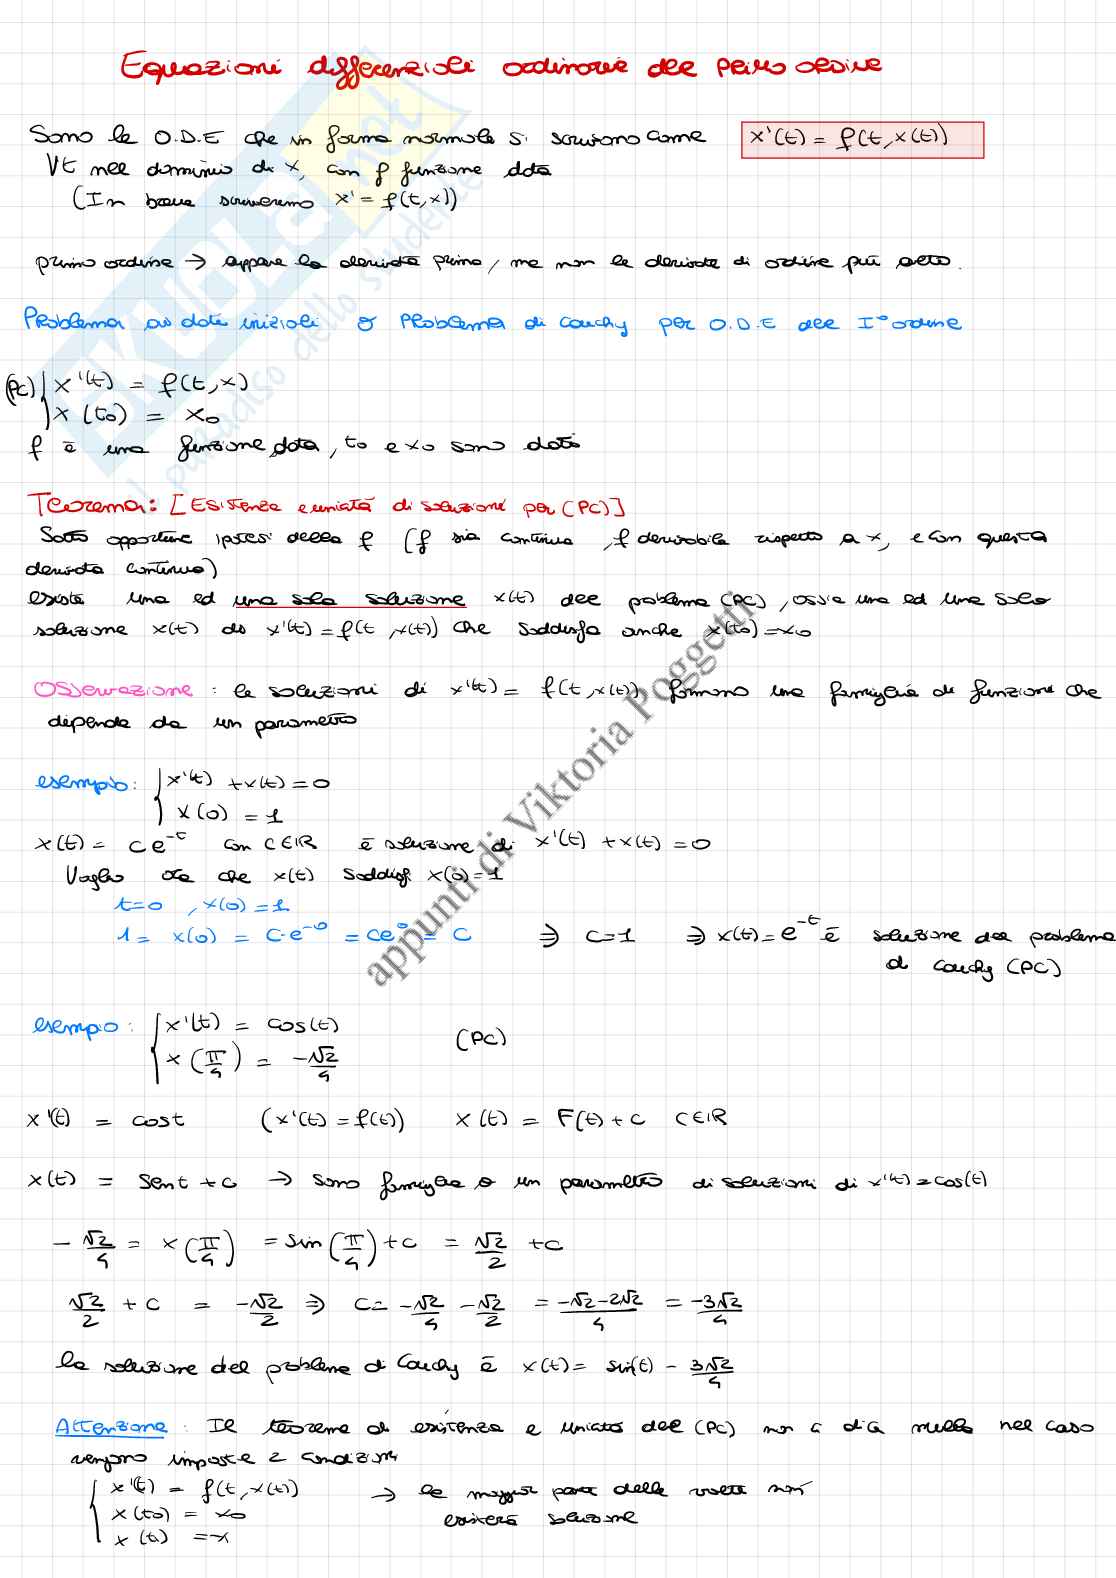 Equazioni differenziali ordinarie del primo ordine
Sono le O.D.E che in forma normale si scrivono come x'(t) = f(t, x(t))
∀t nel dominio di x, con f funzione data
(In breve scriveremo x' = f(t,x))
primo ordine → appare la derivata prima, ma non le derivate di ordine più alto.
Problema ai dati iniziali o Problema di Cauchy per O.D.E del I° ordine
(PC) { x'(t) = f(t,x)
x(t0) = x0
f è una funzione data, t0 e x0 sono dati
Teorema: [Esistenza e unicità di soluzioni per (PC)]
Sotto opportune ipotesi della f (f sia continua, f derivabile rispetto a x, e con questa
derivata continua)
esiste una ed una sola soluzione x(t) del problema (PC), ossia una ed una sola
soluzione x(t) di x'(t) = f(t, x(t)) che soddisfa anche x(t0) = x0
Osservazione: le soluzioni di x'(t) = f(t, x(t)) formano una famiglia di funzioni che
dipende da un parametro
esempio: { x'(t) + x(t) = 0
x(0) = 1
x(t) = c e^-t con c∈ℝ è soluzione di x'(t) + x(t) = 0
Voglio ora che x(t) soddisfi x(0) = 1
t=0, x(0) = 1
1 = x(0) = c·e^-0 = ce^0 = c ⇒ c=1 ⇒ x(t) = e^-t è soluzione del problema
di Cauchy (PC)
esempio: { x'(t) = cos(t) (PC)
x(π/4) = -√2/4
x'(t) = cost (x'(t) = f(t)) x(t) = F(t) + c c∈ℝ
x(t) = sent + c → sono famiglia a un parametro di soluzioni di x'(t) = cos(t)
-√2/4 = x(π/4) = sin(π/4) + c = √2/2 + c
√2/2 + c = -√2/2 ⇒ c = -√2/4 - √2/2 = -√2-2√2/4 = -3√2/4
la soluzione del problema di Cauchy è x(t) = sin(t) - 3√2/4
Attenzione: Il teorema di esistenza e unicità del (PC) non ci dice nulla nel caso
vengono imposte 2 condizioni
{ x'(t) = f(t, x(t)) → la maggior parte delle volte non
x(t0) = x0 esisterà soluzione
x(t1) = x
SKUOLA.net
il paradiso dello studente
appunti di Viktoria Poggetti